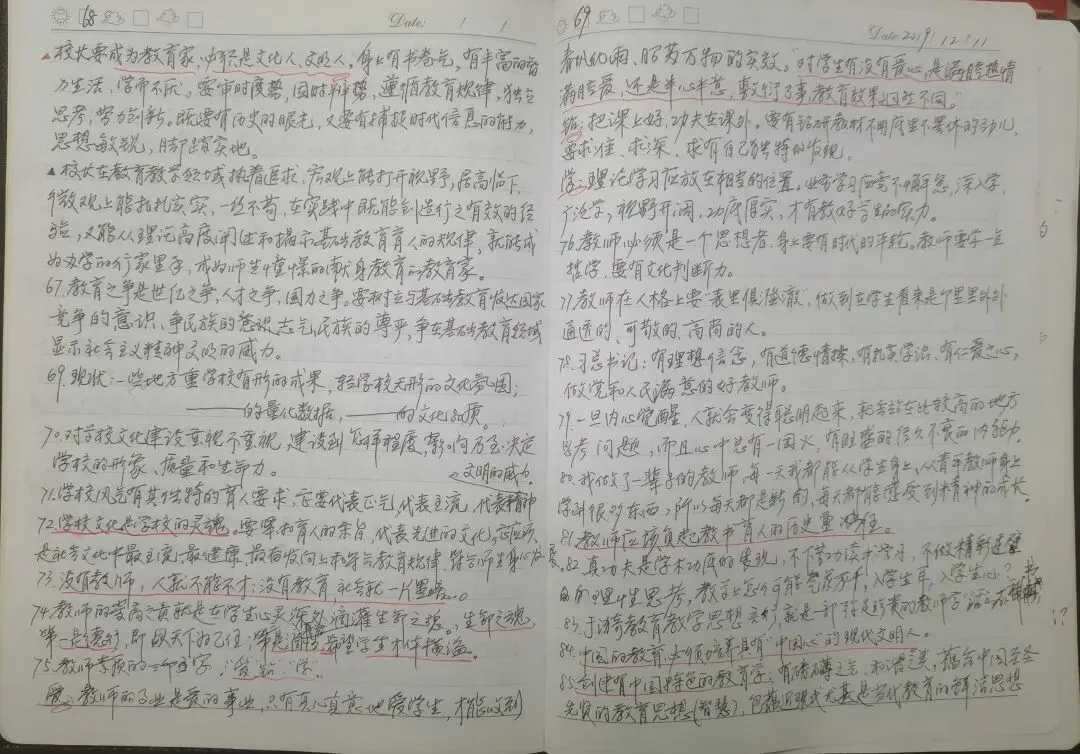 68
Date: / /
▲校长要成为教育家,必须是文化人、文明人,身上有书卷气,有丰富的智
力生活,学而不厌。要审时度势,因时择势,遵循教育规律,独立
思考,努力创新。既要有历史的眼光,又要有捕捉时代信息的能力,
思想敏锐,脚踏实地。
▲校长在教育教学领域执着追求,宏观上能打开视野,居高临下,
微观上能扎扎实实,一丝不苟,在实践中既能创造行之有效的经
验,又能从理论高度阐述和揭示基础教育育人的规律,就能成
为办学的行家里手,成为师生憧憬的献身教育的教育家。
67.教育之争是世纪之争,人才之争,国力之争。要树立与基础教育发达国家
竞争的意识、争民族的志气,民族的尊严,争在基础教育领域
显示社会主义精神文明的威力。
69.现状:一些地方重学校有形的成果,轻学校无形的文化氛围;
——的量化数据,——的文化品质。
70.对学校文化建设重视不重视,建设到怎样程度,影响乃至决定
学校的形象、质量和生命力。
文明的威力。
71.学校风气有其独特的育人要求,它要代表正气,代表主流,代表精神
72.学校文化是学校的灵魂。要紧扣育人的宗旨,代表先进的文化,它应该
是社会文化中最主流、最健康、最有发向上符合教育规律、符合师生身心发展。
73.没有教师,人就不能不才;没有教育,社会就一片黑暗。
74.教师的崇高之责就是在学生心灵深处滴灌生命之魂。生命之魂,
第一是德行,即以天下为己任;第二是,希望学生才华横溢。
75.教师素质的三个自字:“爱”“钻”“学”。
爱:教师的事业是爱的事业,只有真心真意地爱学生,才能收到
69
Date: 2019/12/11
春风化雨,昭苏万物的实效。“对学生有没有爱心,是满腔热情
满腔爱,还是半心半意,敷衍了事,教育效果迥然不同。”
钻:把课上好,功夫在课外。要有钻研教材不用底里不罢休的劲儿,
要求准、求深、求有自己独特的发现。
学:理论学习应放在相当的位置。业务学习应孜孜不懈怠,深入学,
广泛学,视野开阔,功底厚实,才有教好学生的实力。
76.教师必须是一个思想者,身上要有时代的年轮。教师要学一点
哲学,要有文化判断力。
77.教师在人格上要“表里俱澄澈”,做到在学生看来是个里里外外
通透的、可敬的、高尚的人。
78.习总书记:有理想信念,有道德情操,有扎实学识、有仁爱之心,
做党和人民满意的好教师。
79.一旦内心觉醒,人就会变得聪明起来,就会站在比较高的地方
思考问题,而且心中总有一团火,有旺盛的经久不衰的内驱力。
80.我做了一辈子的教师,每一天我都能从学生身上、从青年教师身上
学到很多东西,所以每天都是新的,每天都能感受到精神的成长。
81.教师应该负起教书育人的历史重任。
82.真功夫是学术功底的展现,不下苦功读书学习,不做精彩建肇
的理性思考,教学上怎么可能气象万千,入学生耳,入学生心?
83.于漪教育教学思想 就是一部 珍贵的教师学
84.中国的教育必须培养具有“中国心”的现代文明人。
85.创建有中国特色的教育学,有磅礴之气,和谐之美,蕴含中国圣
先贤的教育思想(智慧),包括近现代尤其是当代教育的鲜活思想